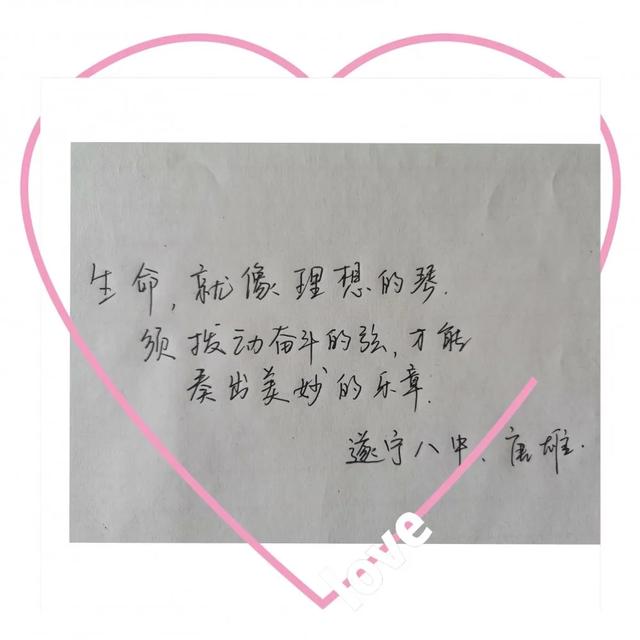 生命,就像理想的琴.
须拨动奋斗的弦,才能
奏出美妙的乐章.
遂宁八中、唐雄.
love